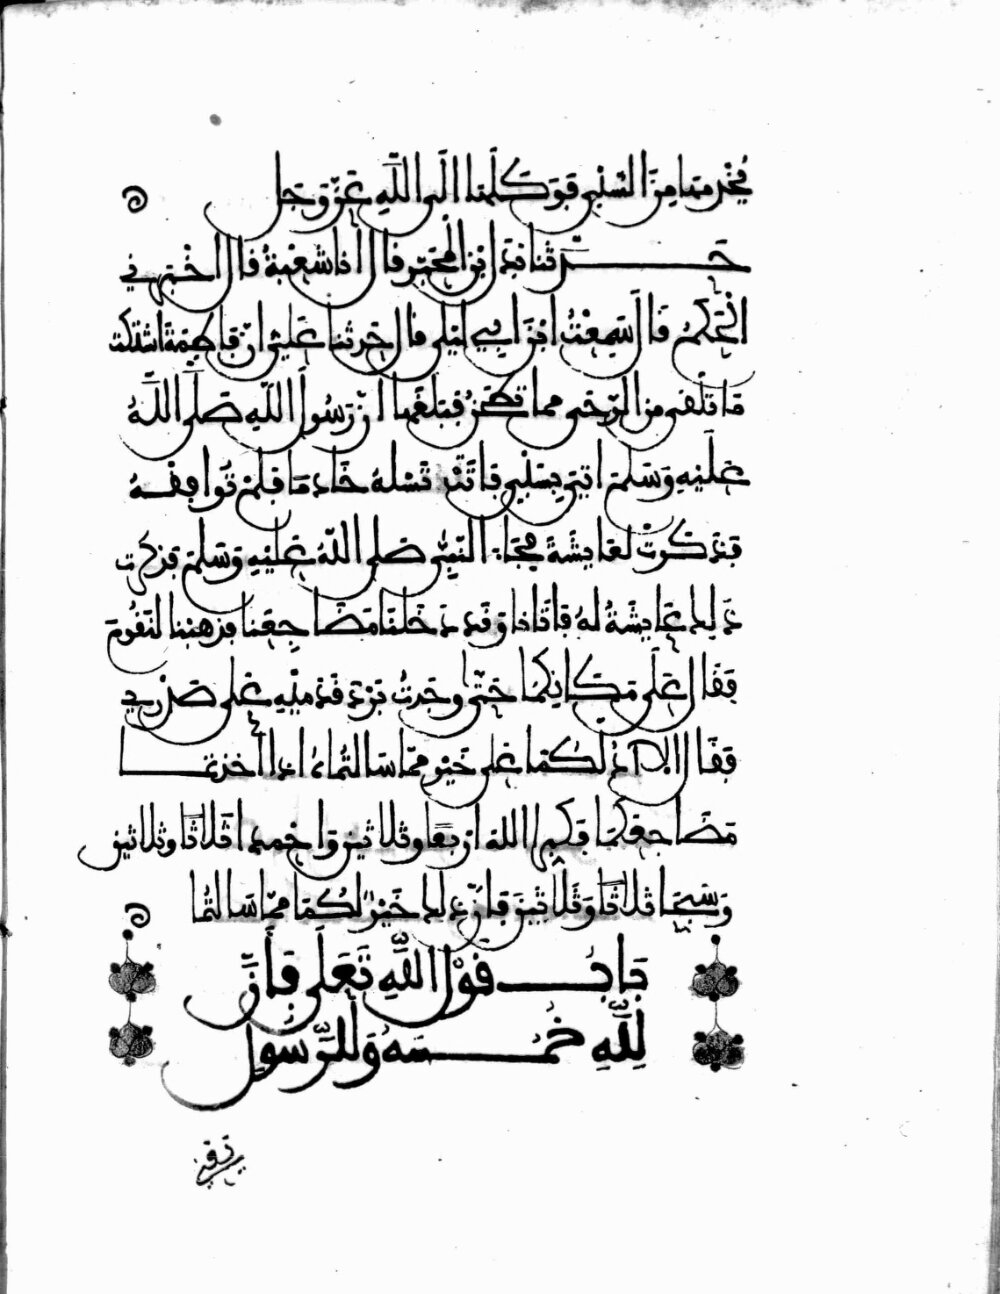 يخدمها من السبي فوكلها الى الله عز وجل
حدثنا بدل بن المحبر قال انا شعبة قال اخبرني
الحكم قال سمعت ابن ابي ليلى قال حدثنا علي ان فاطمة اشتكت
ما تلقى من الرحى مما تطحن فبلغها ان رسول الله صلى الله
عليه وسلم اتي بسبي فاتته تسله خادما فلم توافقه
فذكرت لعايشة فجاء النبي صلى الله عليه وسلم فذكرت
ذلك عايشة له فاتانا وقد دخلنا مضاجعنا فذهبنا لنقوم
فقال على مكانكما حتى وجدت برد قدميه على صدري
فقال الا ادلكما على خير مما سالتماه اذا اخذتما
مضاجعكما فكبرا الله اربعا وثلاثين واحمدا ثلاثا وثلاثين
وسبحا ثلاثا وثلاثين فان ذلك خير لكما مما سالتما
باب قول الله تعلى فأن
لله خمسه وللرسول